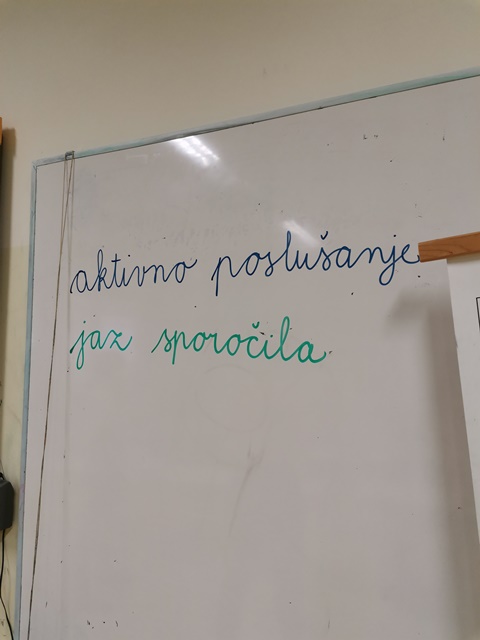 aktivno poslušanje
jaz sporočila